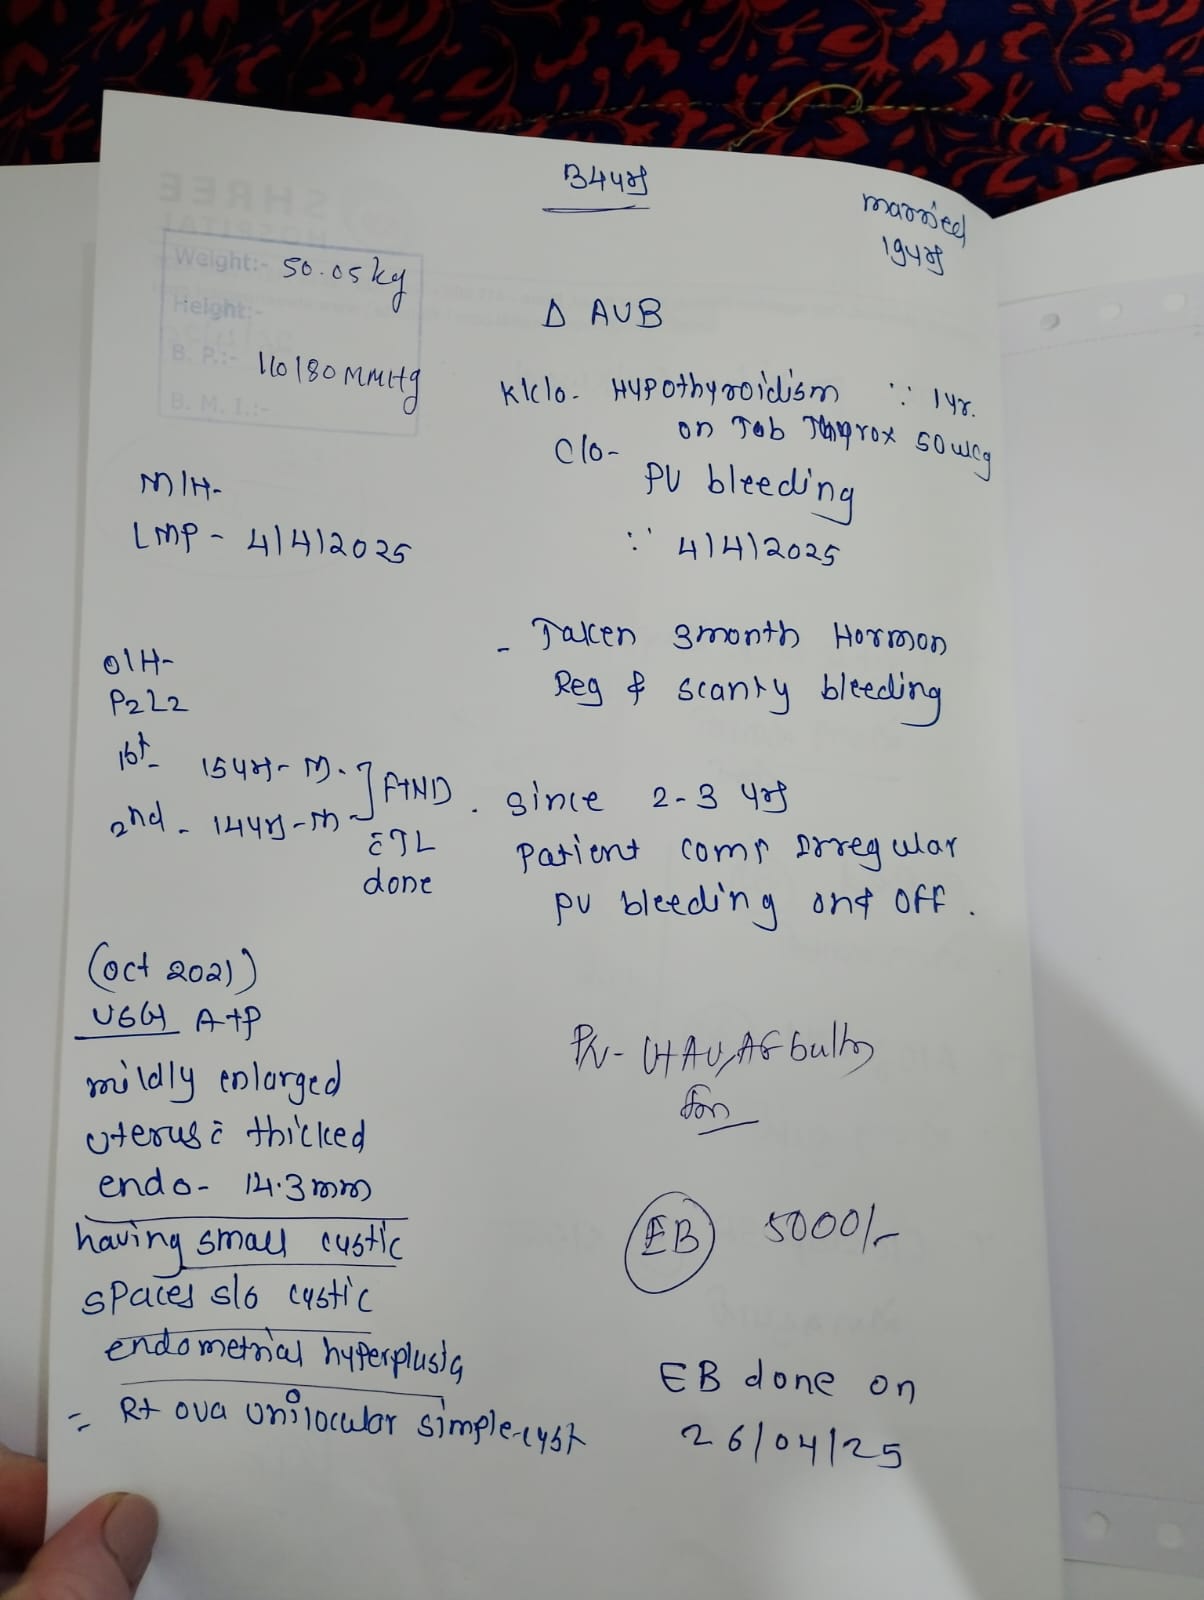 34yrs
married
19yrs
Weight:- 50.05kg
Height:-
B. P.:- 110/80 MMHg
B. M. I.:-
Δ AUB
K/C/O- Hypothyroidism ∵ 1yr.
on Tab Thyrox 50mcg
C/O-
PV bleeding
∵ 4/4/2025
M/H-
LMP - 4/4/2025
- Taken 3month Hormon
Reg & scanty bleeding
O/H-
P2L2
1st- 15yrs- M.
2nd - 14yrs- M
FTND
c̄ TL
done
. since 2-3 yrs
Patient comp Irregular
PV bleeding on & off.
(Oct 2021)
USG A+P
mildly enlarged
uterus c̄ thicked
endo- 14.3mm
having small cystic
spaces s/o cystic
endometrial hyperplusia
= Rt ova unilocular simple-cyst
P/V- Ut AV, AF bulky
EB 5000/-
EB done on
26/04/25